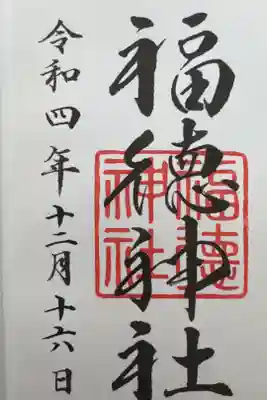 福徳神社
福徳
神社
令和四年十二月十六日